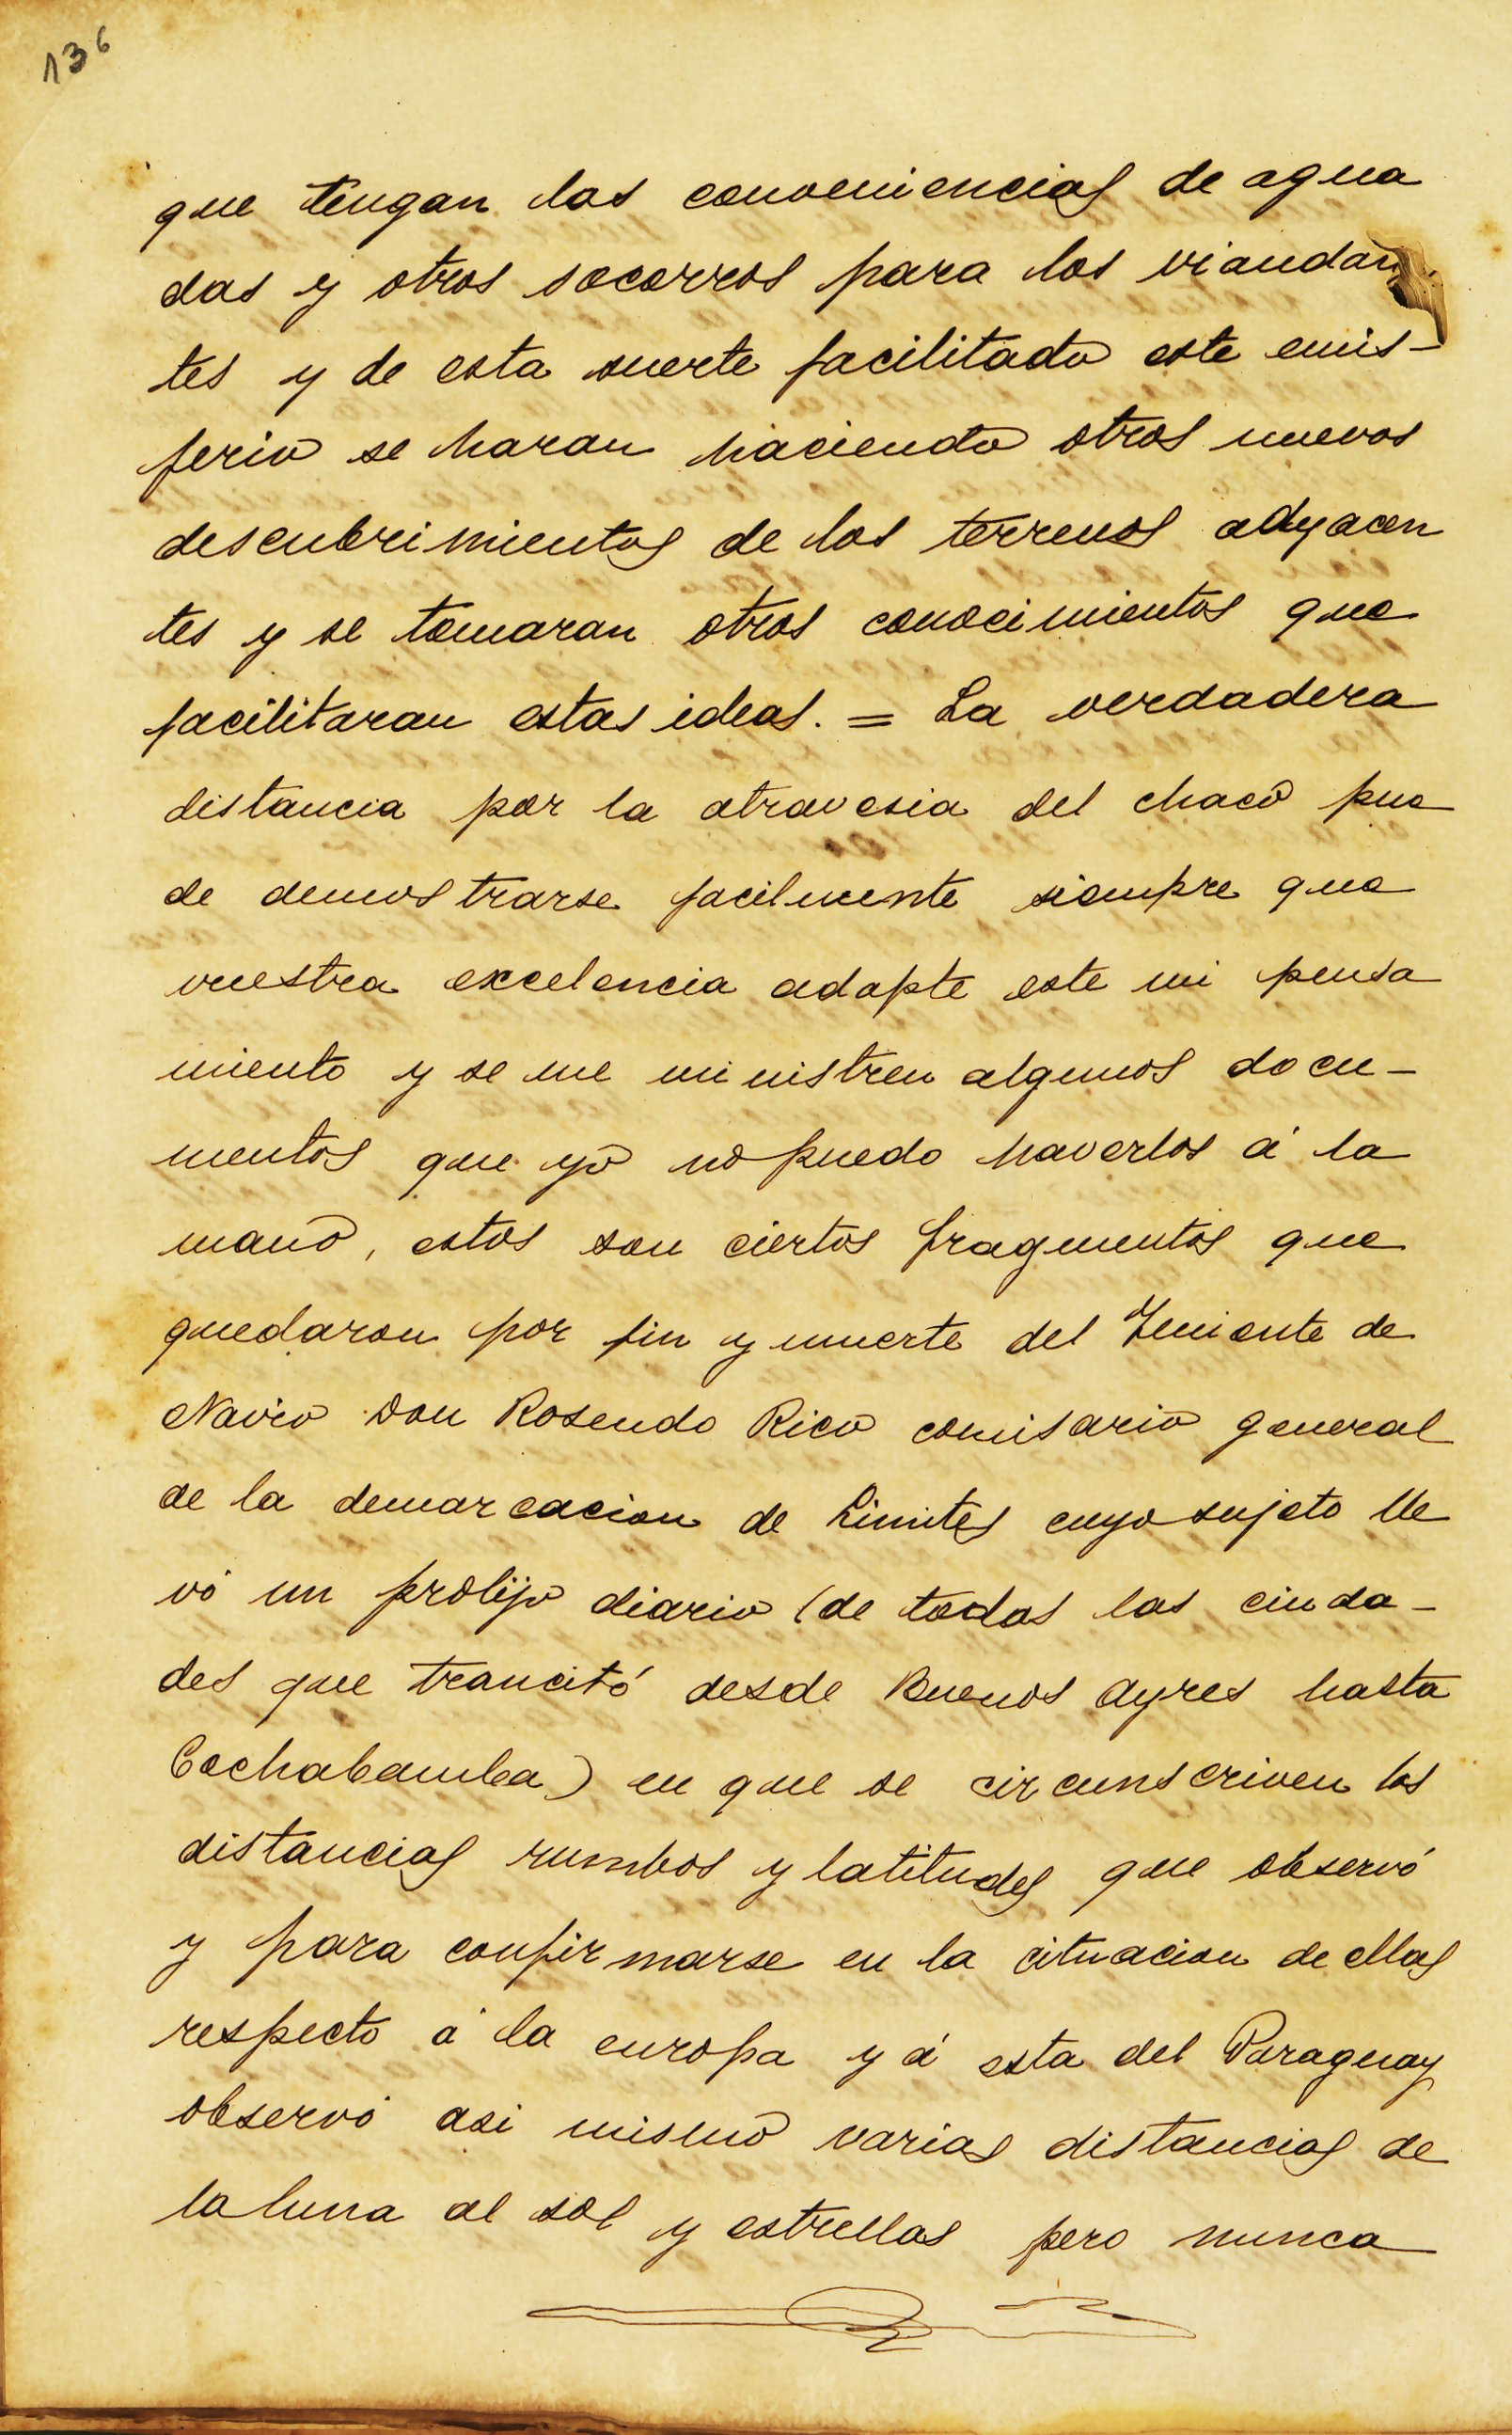 136
que tengan las conveniencias de agua
das y otros socorros para los viandan
tes y de esta suerte facilitado este emis-
ferio se haran haciendo otros nuevos
descubrimientos de los terrenos adyacen
tes y se tomaran otros conocimientos que
facilitaran estas ideas. = La verdadera
distancia por la atravesia del chaco pue
de demostrarse facilmente siempre que
vuestra excelencia adapte este mi pensa
miento y se me ministren algunos docu-
mentos que yo no puedo haverlos á la
mano, estos son ciertos fragmentos que
quedaron por fin y muerte del Teniente de
Navio Don Rosendo Rico comisario general
de la demarcacion de Limites cuyo sujeto lle
vó un prolijo diario (de todas las ciuda-
des que trancitó desde Buenos Ayres hasta
Cochabamba) en que se circunscriven las
distancias rumbos y latitudes que observó
y para confirmarse en la cituacion de ellas
respecto á la europa y á esta del Paraguay
observó asi mismo varias distancias de
la luna al sol y estrellas pero nunca